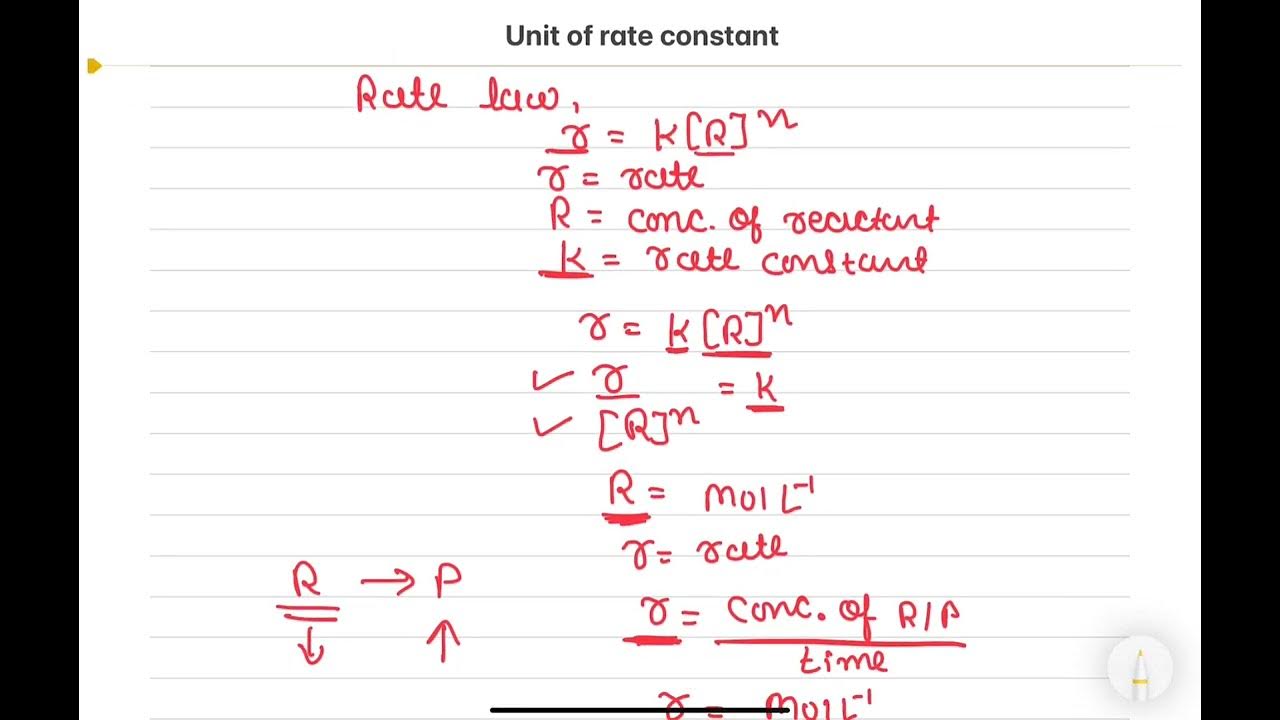 Unit of rate constant
Rate law,
r = k[R]ⁿ
r = rate
R = conc. of reactant
k = rate constant
r = k[R]ⁿ
✓ r = k
✓ [R]ⁿ
R = mol L⁻¹
r = rate
R → P
r = conc. of R/P
↓ ↑
time
r = mol L⁻¹